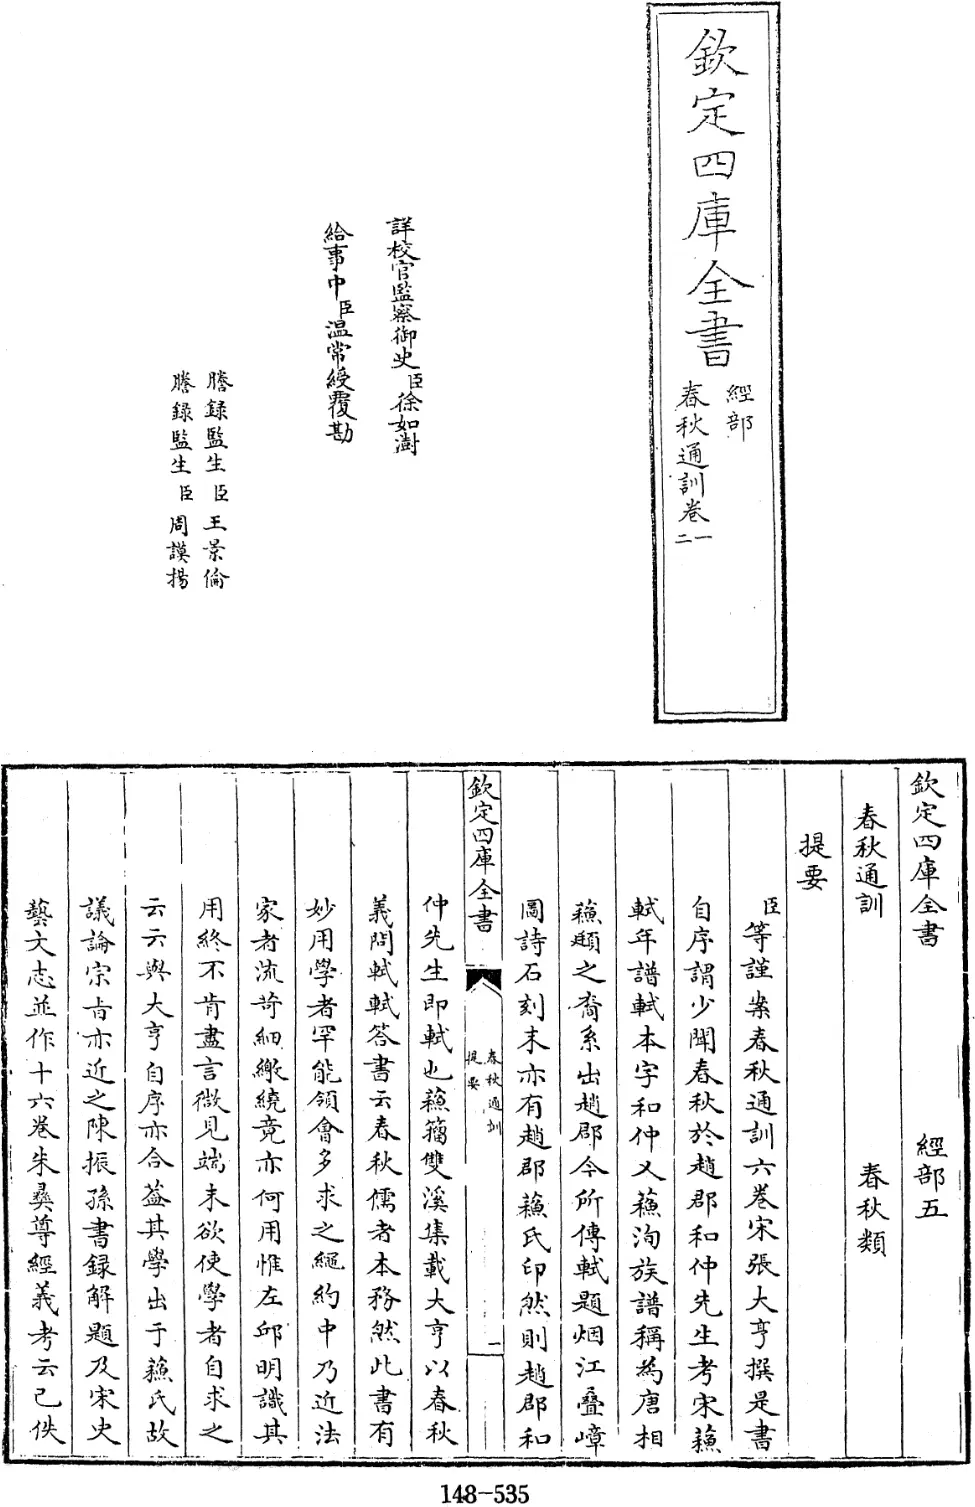 欽定四庫全書
經部
春秋通訓卷一
二
詳校官監察御史臣徐如澍
給事中臣温常綬覆勘
謄錄監生臣王景倫
謄錄監生臣周謨揚
欽定四庫全書 經部五
春秋通訓 春秋類
提要
臣等謹案春秋通訓六卷宋張大亨撰是書
自序謂少聞春秋於趙郡和仲先生考宋蘓
軾年譜軾本字和仲又蘓洵族譜稱為唐相
蘓頲之裔系出趙郡今所傳軾題烟江叠嶂
圖詩石刻末亦有趙郡蘓氏印然則趙郡和
欽定四庫全書 春秋通訓 提要 一
仲先生即軾也蘓籀雙溪集載大亨以春秋
義問軾軾答書云春秋儒者本務然此書有
妙用學者罕能領會多求之繩約中乃近法
家者流苛細繳繞竟亦何用惟左邱明識其
用終不肯盡言微見端末欲使學者自求之
云云與大亨自序亦合葢其學出于蘓氏故
議論宗㫖亦近之陳振孫書録解題及宋史
藝文志並作十六卷朱彝尊經義考云已佚
148-535